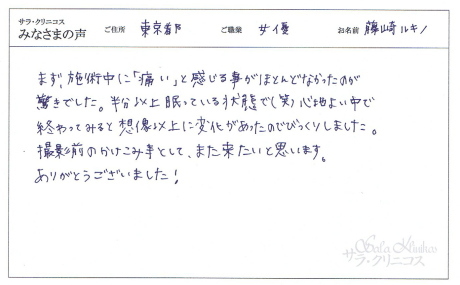 サラ・クリニコス
みなさまの声 ご住所 東京都 ご職業 女優 お名前 藤崎ルキノ
まず、施術中に「痛い」と感じる事がほとんどなかったのが
驚きでした。半分以上眠っている状態で(笑)心地よい中で
終わってみると想像以上に変化があったのでびっくりしました。
撮影前のかけこみ寺として、また来たいと思います。
ありがとうございました!
Sala Klinikos
サラ・クリニコス